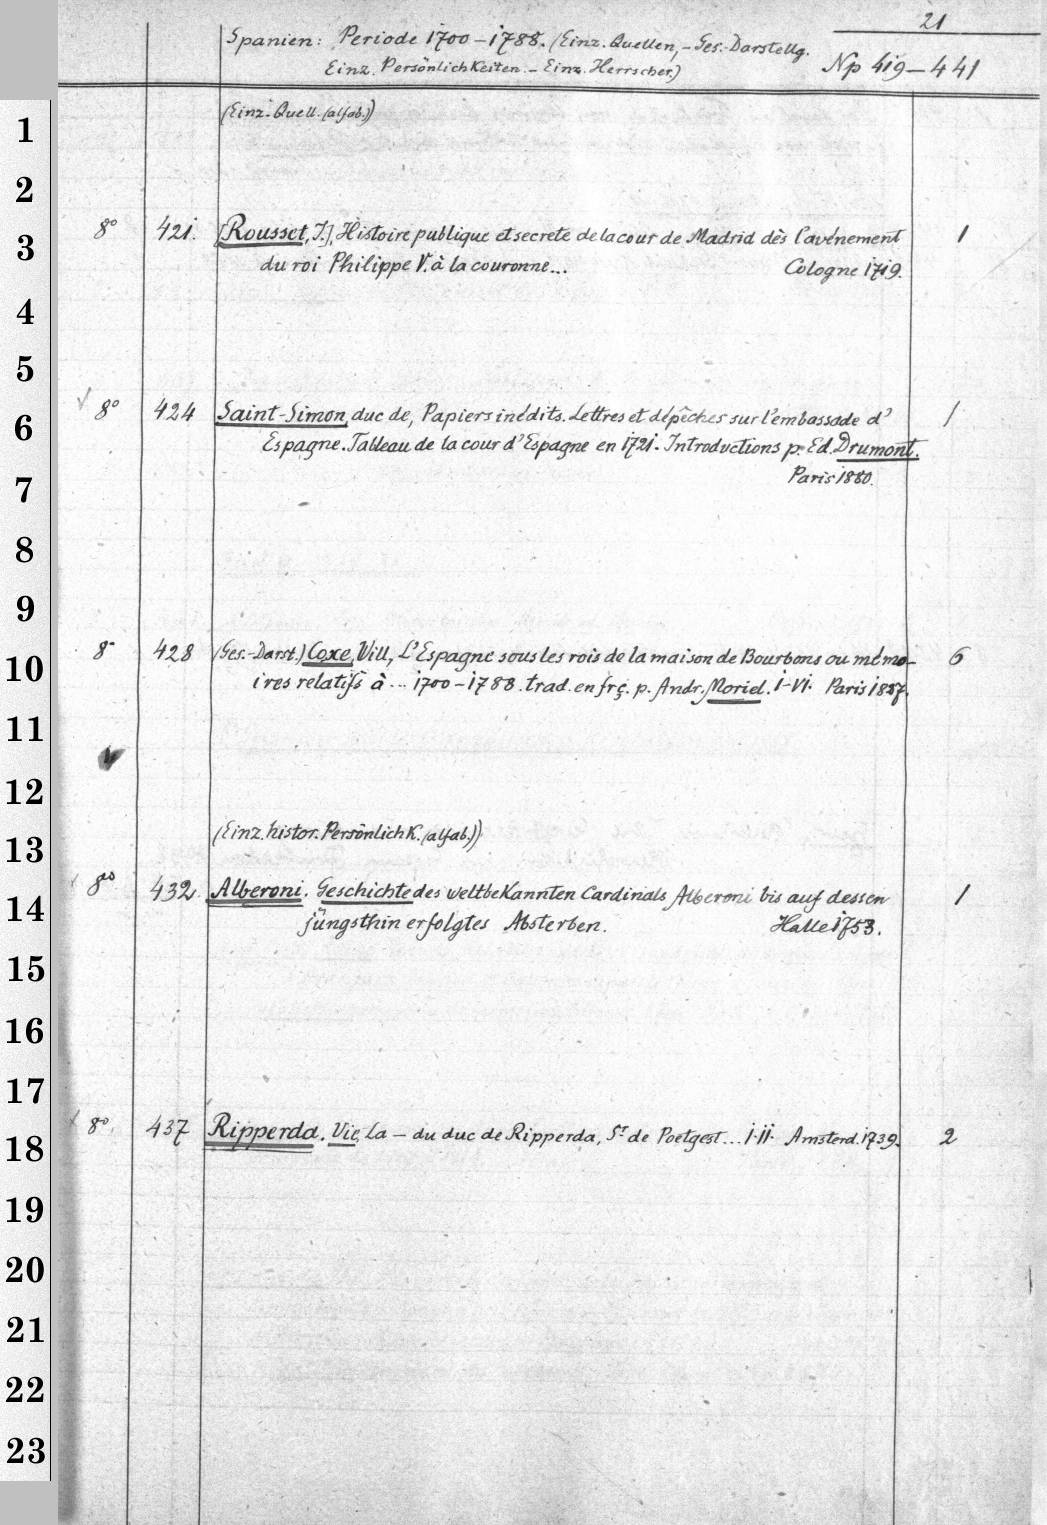 21
Spanien: Periode 1700–1788. (Einz. Quellen, – Ges.-Darstellg.
Einz. Persönlichkeiten – Einz. Herrscher.)
Np 419–441
(Einz. Quell. (alfab.))
1
2
3 8° 421. [Rousset, J.], Histoire publique et secrete de la cour de Madrid dès l'avénement 1
du roi Philippe V. à la couronne... Cologne 1719.
4
5
6 8° 424 Saint-Simon, duc de, Papiers inédits. Lettres et dépêches sur l'embassade d' 1
Espagne. Tableau de la cour d'Espagne en 1721. Introductions p. Ed. Drumont.
7 Paris 1880.
8
9
10 8° 428 (Ges.-Darst.) Coxe, Will, L'Espagne sous les rois de la maison de Bourbons ou mémo- 6
ires relatifs à ... 1700–1788. trad. en frç. p. Andr. Moriel. I–VI. Paris
11
12
13 (Einz. histor. Persönlichk. (alfab.))
14 8° 432. Alberoni. Geschichte des weltbekannten Cardinals Alberoni bis auf dessen 1
jüngsthin erfolgtes Absterben. Halle 1753.
15
16
17
18 8°. 437 Ripperda. Vie, La – du duc de Ripperda, Sr de Poetgest... I.II. Amsterd. 1739. 2
19
20
21
22
23